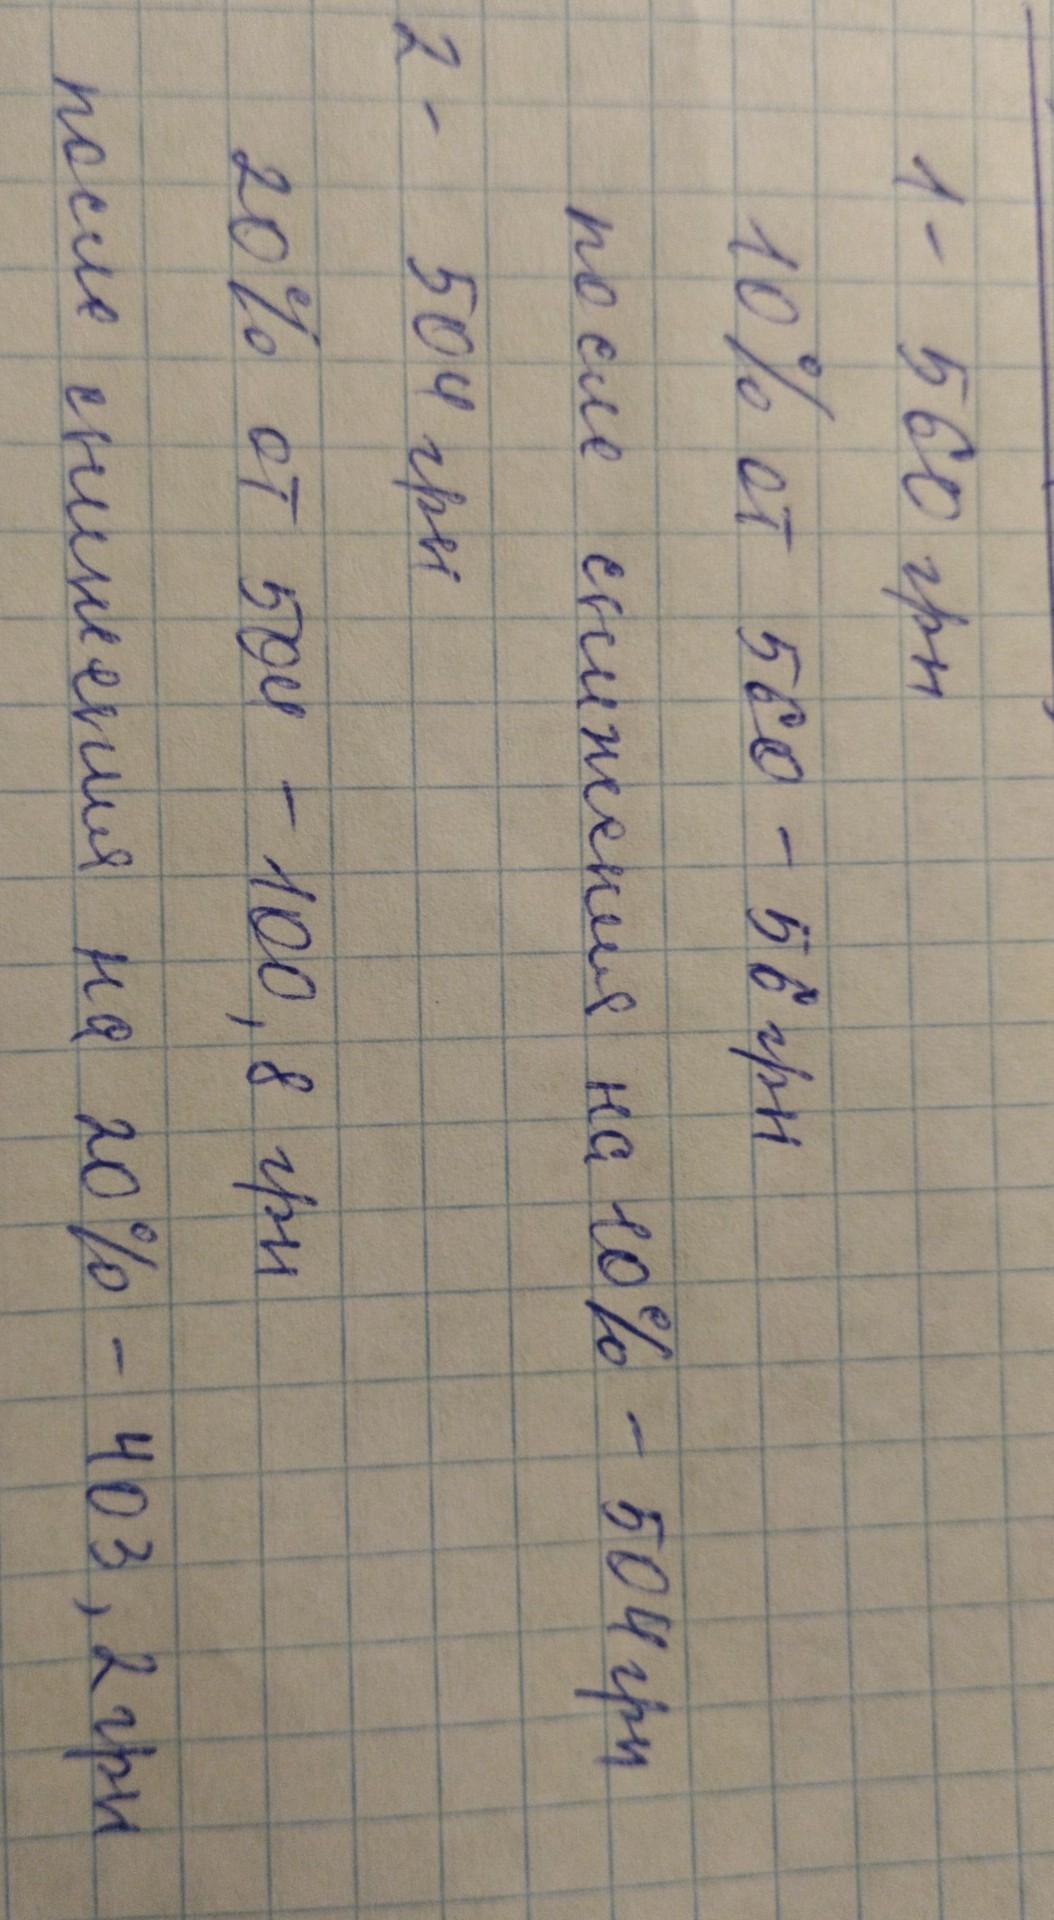 1 - 560 грн
10% от 560 - 56 грн
после снижения на 10% - 504 грн
2 - 504 грн
20% от 504 - 100,8 грн
после снижения на 20% - 403,2 грн